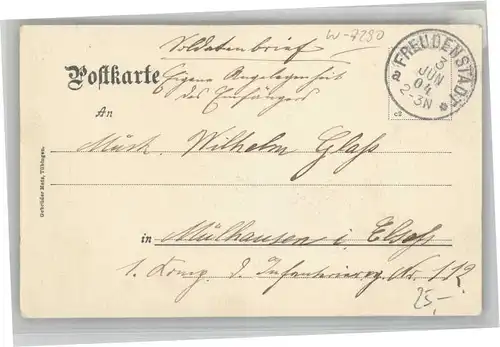 W-7290
Soldatenbrief
Eigene Angelegenheit
des Empfängers
Postkarte
FREUDENSTADT
3
JUN
04
2-3N
a
c2
An
Musk. Wilhelm Glaß
in Mülhausen i. Elsaß
1. Komp. d. Infanterierg. Nr. 112
25,-
Gebrüder Metz, Tübingen.